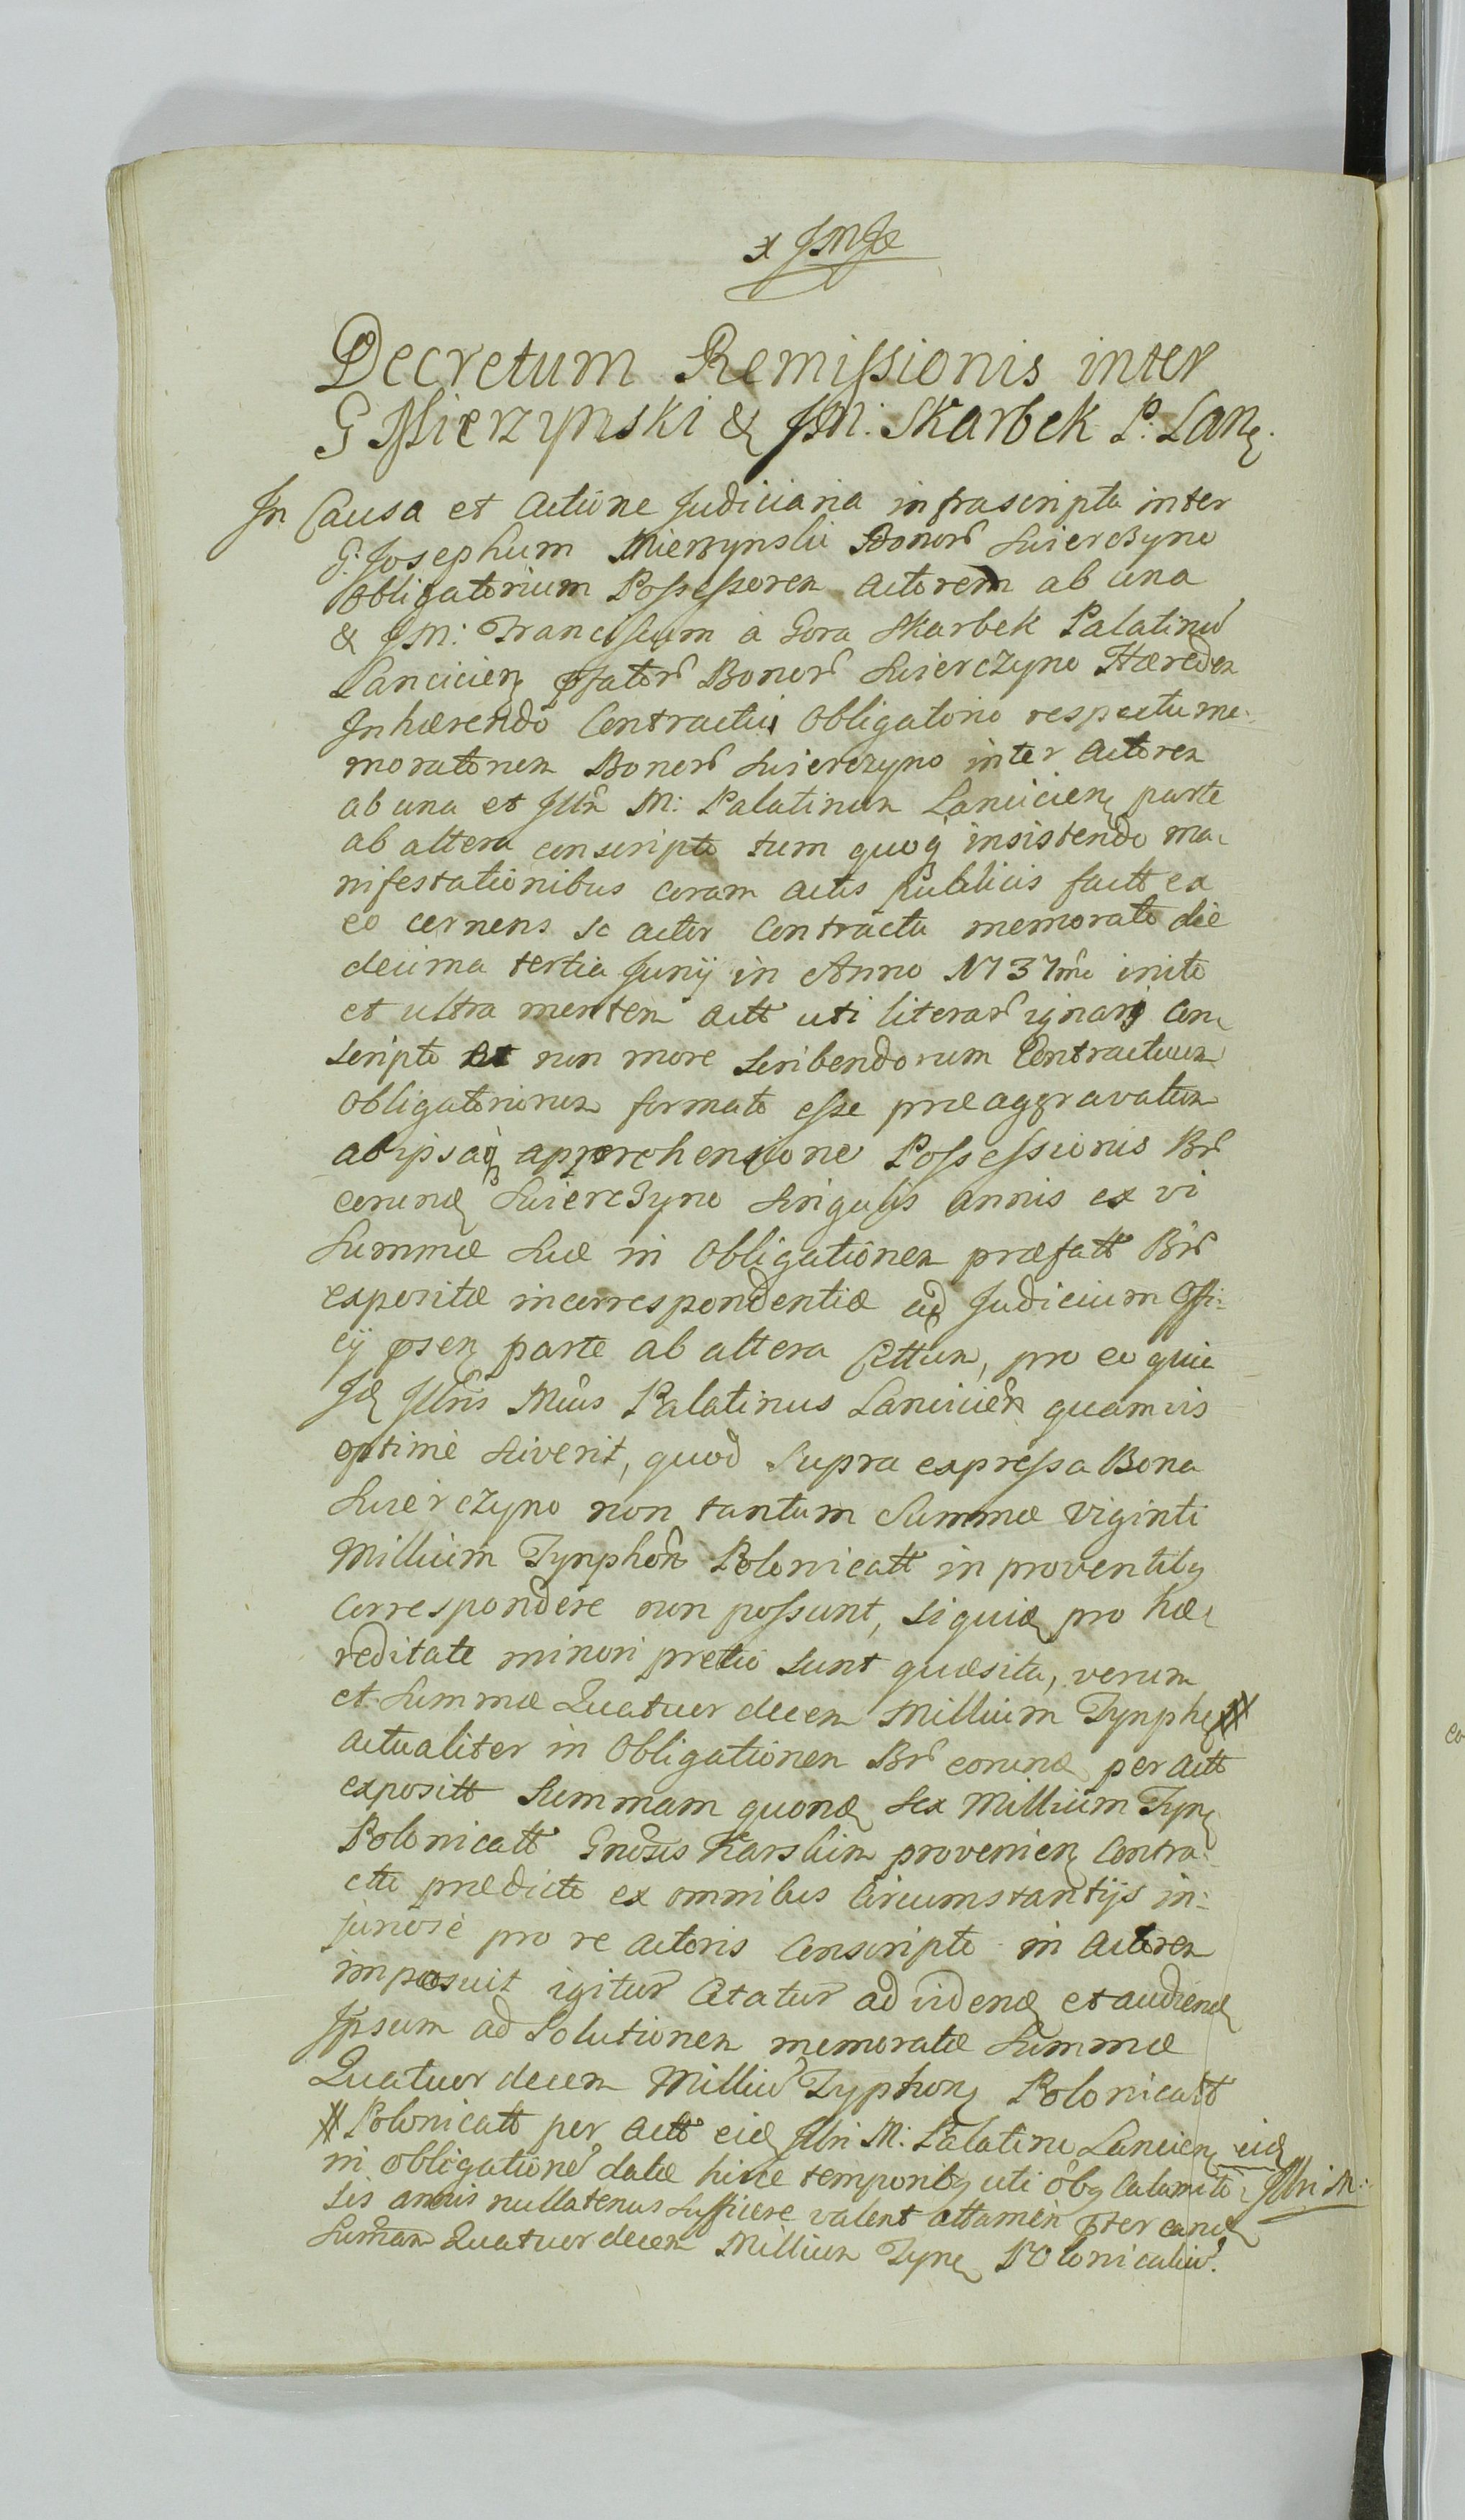 x JMJe
Decretum Remissionis inter
G Mierzynski & JM: Skarbek P: Lanc.
In Causa et Actione Judiciaria infrascripta inter
G: Josephum Mierzynski Bonor Swierczyno
Obligatorium Possessorem Actorem ab una
& JM: Franciscum à Gora Skarbek Palatinu
Lancicien pfator Bonor Swierczyno Hæredem
Inhærendo Contractui Obligatorio respectu me:
moratorum Bonor Swierczyno inter Actorem
ab una et Jllm M: Palatinum Lancicien parte
ab altera conscripto tum quoq insistendo ma-
nifestationibus coram actis publicis fact ex
eo cernens se actor Contractu memorato die
decima tertia Junij in Anno 1737mo inito
et ultra mentem Act uti literar ignari Con-
scripto et non more scribendorum Contractuum
Obligatoriorum formato esse præaggravatum
ab ipsaq apprehensione Possessionis Br
eorund Swierczyno Singulis annis ex vi
Summæ Suæ in Obligationem præfat Br
expositæ incorrespondentiæ ad Judicium Offi:
cij psen parte ab altera Cittum, pro eo quia
Id Jllris Mus Palatinus Lancicien quamvis
optimè Sciverit, quod Supra expressa Bona
Swierczyno non tantum Summæ Viginti
Millium Tynphon Polonicatt in proventibq
Correspondere non possunt, siquid pro hæ-
reditate minori pretio sunt quæsita, verum
et Summæ Quatuor decem Millium Tynph #
Actualiter in Obligationem Br eorund per Act
exposit Summam quond Sex Millium Tyn
Polonicatt Gnosis Karskim provenien Contra-
ctu prædicto ex omnibus Circumstantijs in:
juriosè pro re actoris Conscripto in Actorem
imposuit igitur Citatur ad videnđ et audienđ
Ipsum ad Solutionem memoratæ Summæ
Quatuor decem Milliu Typhon Polonicatt
# Polonicatt per Act eid Jllri M: Palatino Lancicien eid
in obligatione datæ hisce temporibq uti obq Calamito- Jllri M:
sis annis nullatenus Sufficere valent attamen pter eand
Summam Quatuor decem Millium Tyn Polonicaliu.